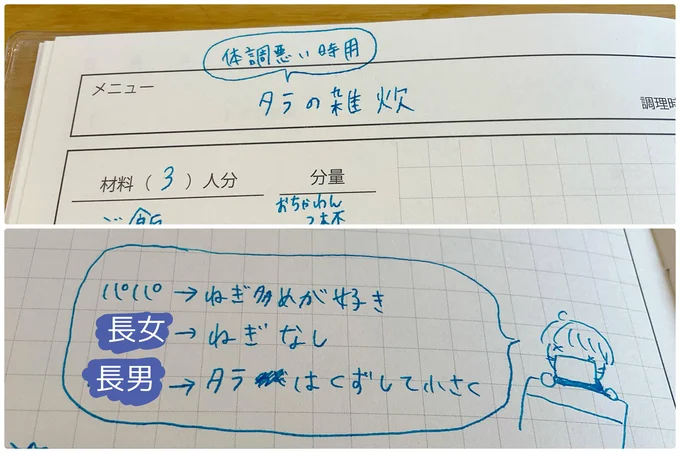 体調悪い時用
メニュー
タラの雑炊
調理時
材料(3)人分
分量
ご飯
おちゃわん
1杯
パパ→ねぎ多めが好き
長女→ねぎなし
長男→タラはくずして小さく